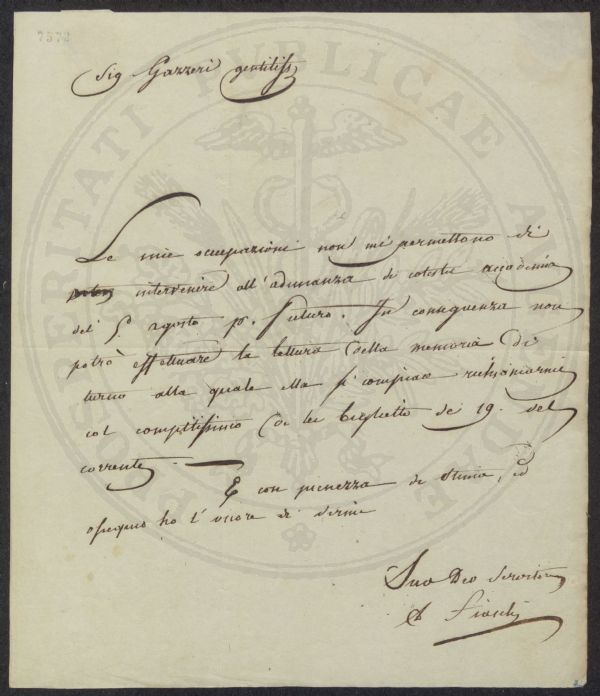 7572
Sig Gazzeri gentiliss
Le mie occupazioni non mi permettono di
intervenire all'adunanza di cotesta accademia
del 5. agosto p. futuro. In conseguenza non
potrò effettuare la lettura della memoria di
turno alla quale ella si compiace
col compitissimo di lei biglietto dei 19. del
corrente. —
E con pienezza di stima, ed
ossequio ho l'onore di dirmi
Suo Deo Servitore
PROSPERITATI PUBLICAE AUGENDAE